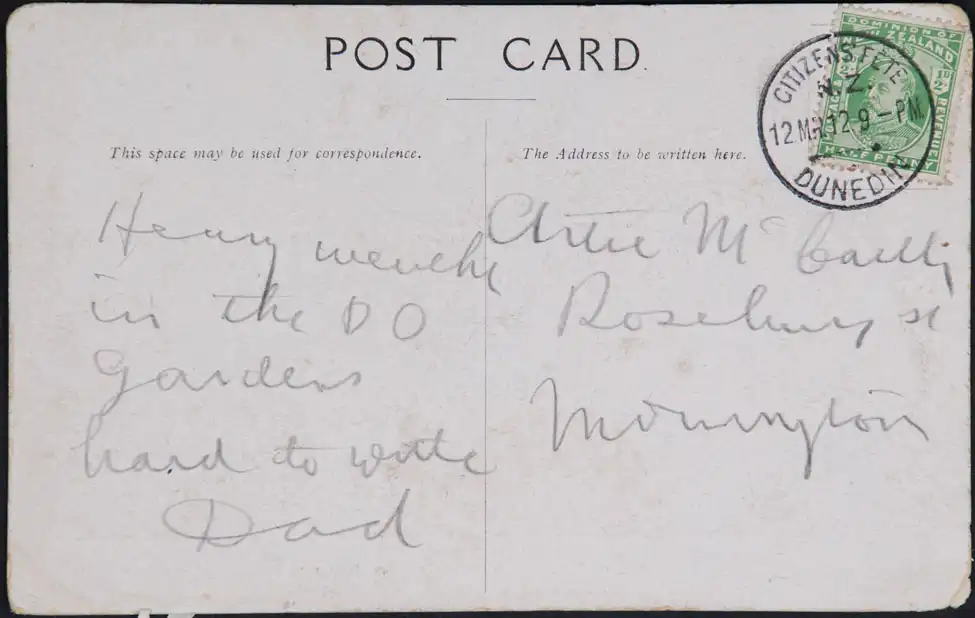 POST CARD.
This space may be used for correspondence.
The Address to be written here.
Henry
in the D O
Gardens
hard to write
Dad
Artie McCarthy
Rosebury st
Mornington
CITIZENS FETE
N.Z.
12 MR 12 9 - PM
DUNEDIN
DOMINION OF
NEW ZEALAND
POSTAGE & REVENUE
HALF PENNY